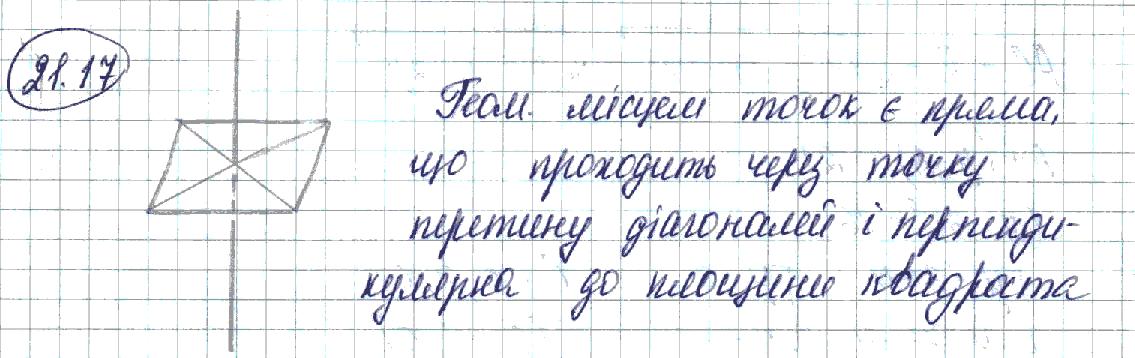 21.17
Геом. місцем точок є пряма,
що проходить через точку
перетину діагоналей і перпенди-
кулярна до площини квадрата